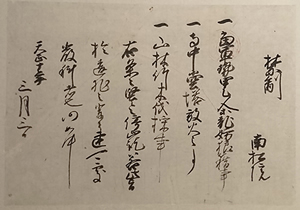 禁制
南松院
一当軍勢甲乙人等乱妨狼藉事
一寺中堂塔放火之事
一山林竹木伐採事
右条々堅令停止訖若
於違犯之輩者速可処
厳科者也仍如件
天正十年
三月三日